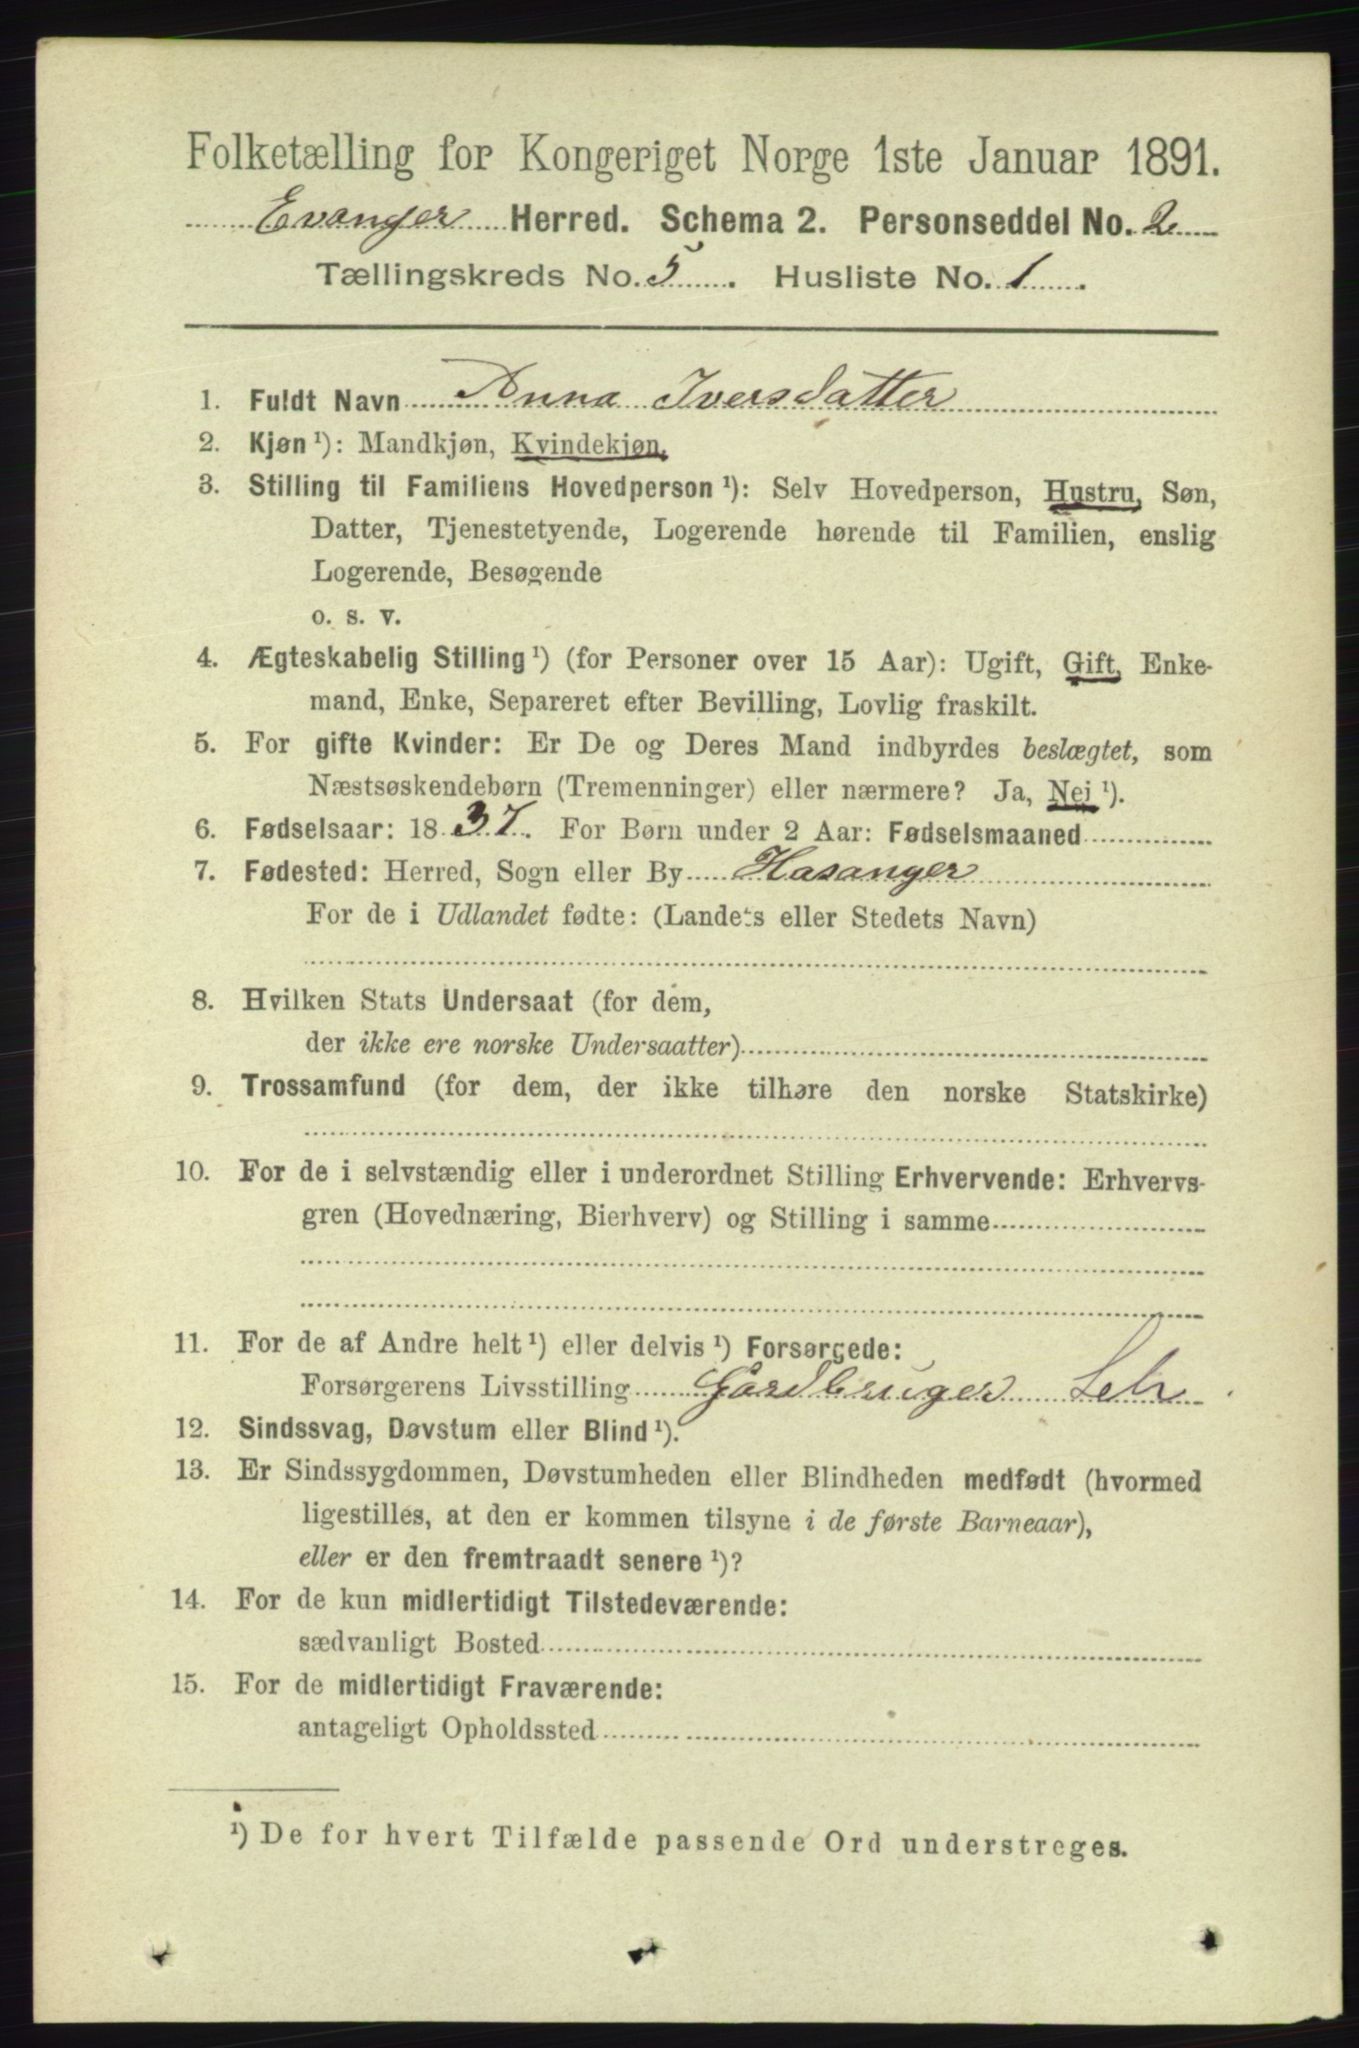 Folketælling for Kongeriget Norge 1ste Januar 1891.
Evanger Herred. Schema 2. Personseddel No. 2
Tællingskreds No. 5. Husliste No. 1.
1. Fuldt Navn Anna Iversdatter
2. Kjøn ¹): Mandkjøn, Kvindekjøn.
3. Stilling til Familiens Hovedperson ¹): Selv Hovedperson, Hustru, Søn,
Datter, Tjenestetyende, Logerende hørende til Familien, enslig
Logerende, Besøgende
o. s. v.
4. Ægteskabelig Stilling ¹) (for Personer over 15 Aar): Ugift, Gift, Enke-
mand, Enke, Separeret efter Bevilling, Lovlig fraskilt.
5. For gifte Kvinder: Er De og Deres Mand indbyrdes beslægtet, som
Næstsøskendebørn (Tremenninger) eller nærmere? Ja, Nej ¹).
6. Fødselsaar: 1837. For Børn under 2 Aar: Fødselsmaaned
7. Fødested: Herred, Sogn eller By Hasanger
For de i Udlandet fødte: (Landets eller Stedets Navn)
8. Hvilken Stats Undersaat (for dem,
der ikke ere norske Undersaatter)
9. Trossamfund (for dem, der ikke tilhøre den norske Statskirke)
10. For de i selvstændig eller i underordnet Stilling Erhvervende: Erhvervs-
gren (Hovednæring, Bierhverv) og Stilling i samme
11. For de af Andre helt ¹) eller delvis ¹) Forsørgede:
Forsørgerens Livsstilling Gardbruger Selv
12. Sindssvag, Døvstum eller Blind ¹).
13. Er Sindssygdommen, Døvstumheden eller Blindheden medfødt (hvormed
ligestilles, at den er kommen tilsyne i de første Barneaar),
eller er den fremtraadt senere ¹)?
14. For de kun midlertidigt Tilstedeværende:
sædvanligt Bosted
15. For de midlertidigt Fraværende:
antageligt Opholdssted
¹) De for hvert Tilfælde passende Ord understreges.